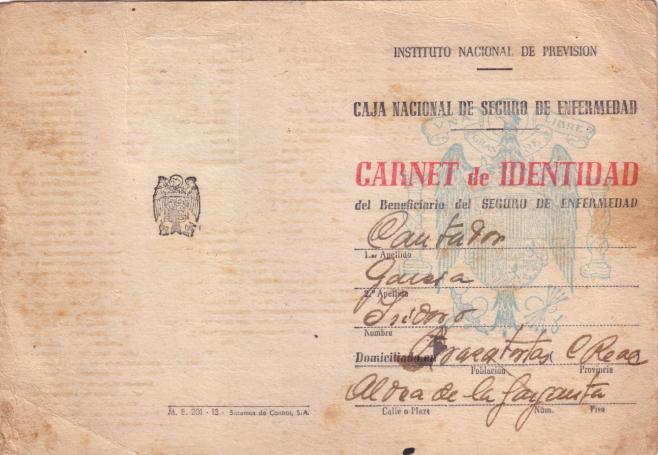 INSTITUTO NACIONAL DE PREVISION
CAJA NACIONAL DE SEGURO DE ENFERMEDAD
UNA LIBRE
GRANDE
CARNET de IDENTIDAD
del Beneficiario del SEGURO DE ENFERMEDAD
Cantador
1.er Apellido
Garcia
2.º Apellido
Isidoro
Nombre
Domiciliado en C Real
Población Provincia
Aldea de la Garganta
Calle o Plaza Núm. Piso
M. E. 201 - 13 - Sistemas de Control, S.A.